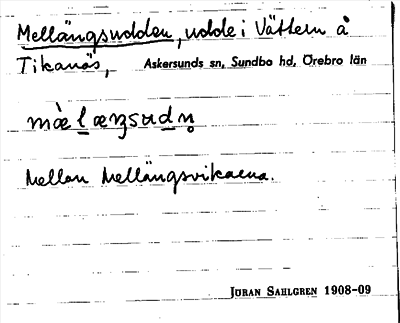 Mellängsudden, udde i Vättern å
Tikanäs, Askersunds sn, Sundbo hd, Örebro län
mæ̀l æŋsudn̥
Mellan Mellängsvikarna.
JÖRAN SAHLGREN 1908-09